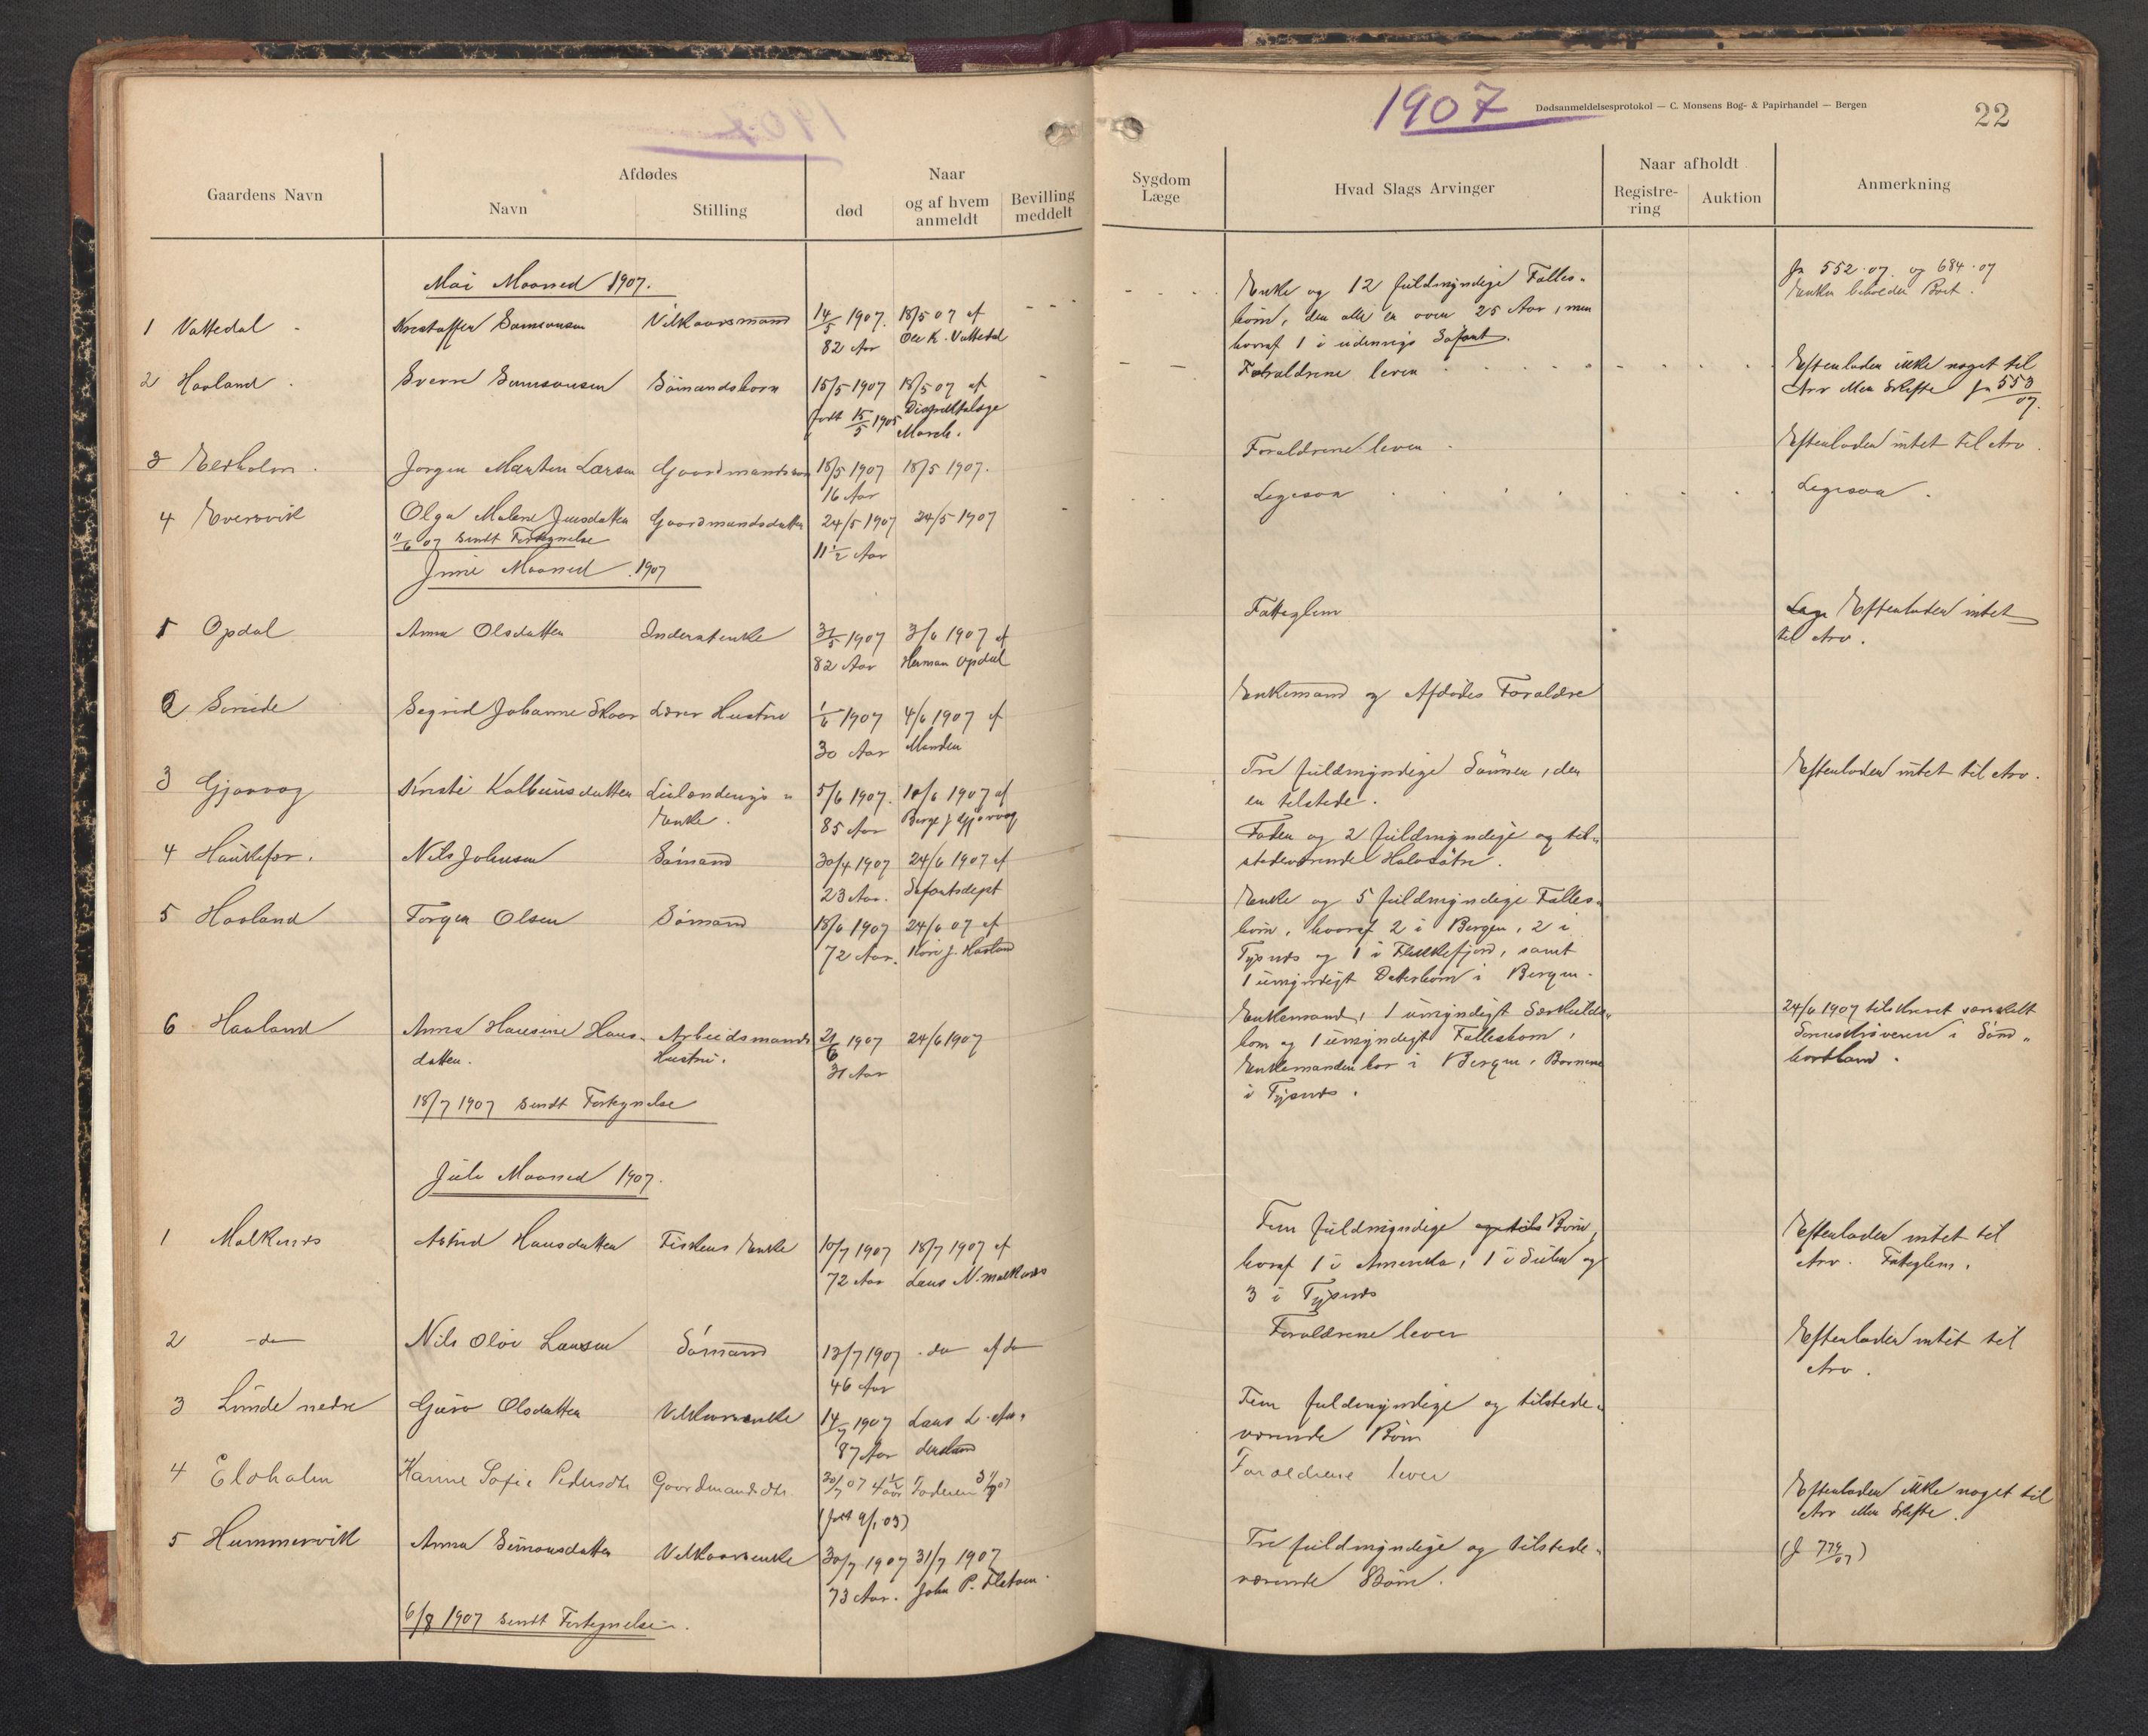 1907
Dødsanmeldelsesprotokol — C. Monsens Bog- & Papirhandel — Bergen
22
Gaardens Navn
Afdødes
Navn
Stilling
Naar
død
og af hvem anmeldt
Bevilling meddelt
Sygdom Læge
Hvad Slags Arvinger
Naar afholdt
Registrering
Auktion
Anmerkning
Mai Maaned 1907.
1 Vattedal
Samsonsen
Vilkaarsmand
14/5 1907. 18/5 07 af
82 Aar Ole K. Vattedal
Enke og 12 fuldmyndige Fælles-
børn, der alle er over 25 Aar, men
hvoraf 1 i udenrigs Søfart.
Jr 552.07. og 684.07
Enken beholder Boet.
2 Haaland
Sverre Samsonsen
Sømandsbarn
15/5 1907 18/5 07 af
født 15/5 1905
Forældrene lever
Efterlader ikke noget til
Arv eller Skifte Jr 553/07.
3
Jørgen Marten Larsen
18/5 1907 18/5 1907.
16 Aar
Forældrene lever
Efterlader intet til Arv.
4 Eversvik
Olga Malene Jensdatter
Gaardmandsdatter
24/5 1907 24/5 1907
11 1/2 Aar
Ligesaa
Ligesaa
11/6 07 sendt Fortegnelse
Juni Maaned 1907
1 Opdal
Anna Olsdatter
Inderstenke
31/5 1907 3/6 1907 af
82 Aar Herman Opdal
Fattiglem
Efterlader intet
til Arv.
2
Sigrid Johanne Skaar
Lærer Hustru
1/6 1907 4/6 1907 af
30 Aar Manden
Enkemand og Afdødes Forældre
3 Gjøvaag
Kristi Kolbeinsdatter
Leilændings-
Enke.
5/6 1907. 10/6 1907 af
85 Aar
Tre fuldmyndige Sønner, der
er tilstede.
Efterlader intet til Arv.
4
Nils Johnsen
Sømand
30/4 1907 24/6 1907 af
23 Aar. Søfartsdept
Fader og 2 fuldmyndige og til-
stedeværende Halvsøtre.
5 Haaland
Torger Olsen
Sømand
18/6 1907 24/6 07 af
72 Aar.
Enke og 5 fuldmyndige Fælles-
børn, hvoraf 2 i Bergen, 2 i
Tysnes og 1 i Flekkefjord, samt
1 umyndigt Datterbarn i Bergen.
6 Haaland
Anna Hansine Hans-
datter.
Arbeidsmands
Hustru.
21/6 1907 24/6 1907
31 Aar
Enkemand, 1 umyndigt Særkulds-
barn og 1 umyndigt Fællesbarn,
Enkemanden bor i Bergen, Børnene
i Tysnes.
24/6 1907 tilskrevet
Sorenskriveren i Sønd-
hordland.
18/7 1907 sendt Fortegnelse
Juli Maaned 1907.
1 Malkenes
Astrid Hansdatter
Fiskers Enke
10/7 1907 18/7 1907 af
72 Aar Lars N. Malkenes
Fem fuldmyndige Børn,
hvoraf 1 i Amerika, 1 i og
3 i Tysnes
Efterlader intet til
Arv. Fattiglem.
2 -do-
Nils Olai Larsen
Sømand
13/7 1907 do af do
46 Aar
Forældrene lever
Efterlader intet til
Arv.
3 Lunde nedre
Guro Olsdatter
Vilkaarsenke
14/7 1907
87 Aar
Fem fuldmyndige og tilstede-
værende Børn
4 Elsholm
Karine Sofie Pedersdtr
Gaardmandsdtr.
30/7 07 4 1/2 aar Faderen 31/7 07
(født 9/1 03)
Forældrene lever
Efterlader ikke noget til
Arv eller Skifte.
5 Hummervik
Anna Simonsdatter
Vilkaarsenke
30/7 1907 31/7 1907
73 Aar. John P.
Tre fuldmyndige og tilstede-
værende Børn.
(J 779/07)
6/8 1907 sendt Fortegnelse.